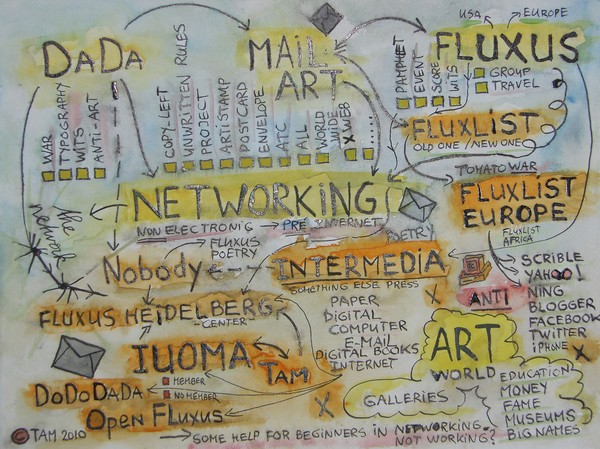 USA → EUROPE
DADA
MAIL-ART
FLUXUS
WAR
TYPOGRAPHY
WITS
ANTI-ART
COPY-LEFT
UNWRITTEN RULES
PROJECT
ARTISTAMP
POSTCARD
ENVELOPE
ATC
ALL
WORLD WIDE
X WEB
PAMPHLET
EVENT
SCORE
WITS
GROUP
TRAVEL
FLUXLIST
OLD ONE / NEW ONE
TOMATO WAR
FLUXLIST
EUROPE
FLUXLIST
AFRICA
NETWORKING
NON ELECTRONIC → PRE INTERNET
POETRY
the network
Nobody
FLUXUS
POETRY
INTERMEDIA
SOMETHING ELSE PRESS
PAPER
DIGITAL
COMPUTER
E-MAIL
DIGITAL BOOKS
INTERNET
X
ANTI
SCRIBLE
YAHOO!
NING
BLOGGER
FACEBOOK
TWITTER
iPHONE
X
FLUXUS HEIDELBERG
-CENTER-
IUOMA
TAM
DODODADA
MEMBER
NO MEMBER
OPEN FLUXUS
X
ART
WORLD
GALLERIES
EDUCATION
MONEY
FAME
MUSEUMS
BIG NAMES
© TAM 2010
SOME HELP FOR BEGINNERS IN NETWORKING.
NOT WORKING?